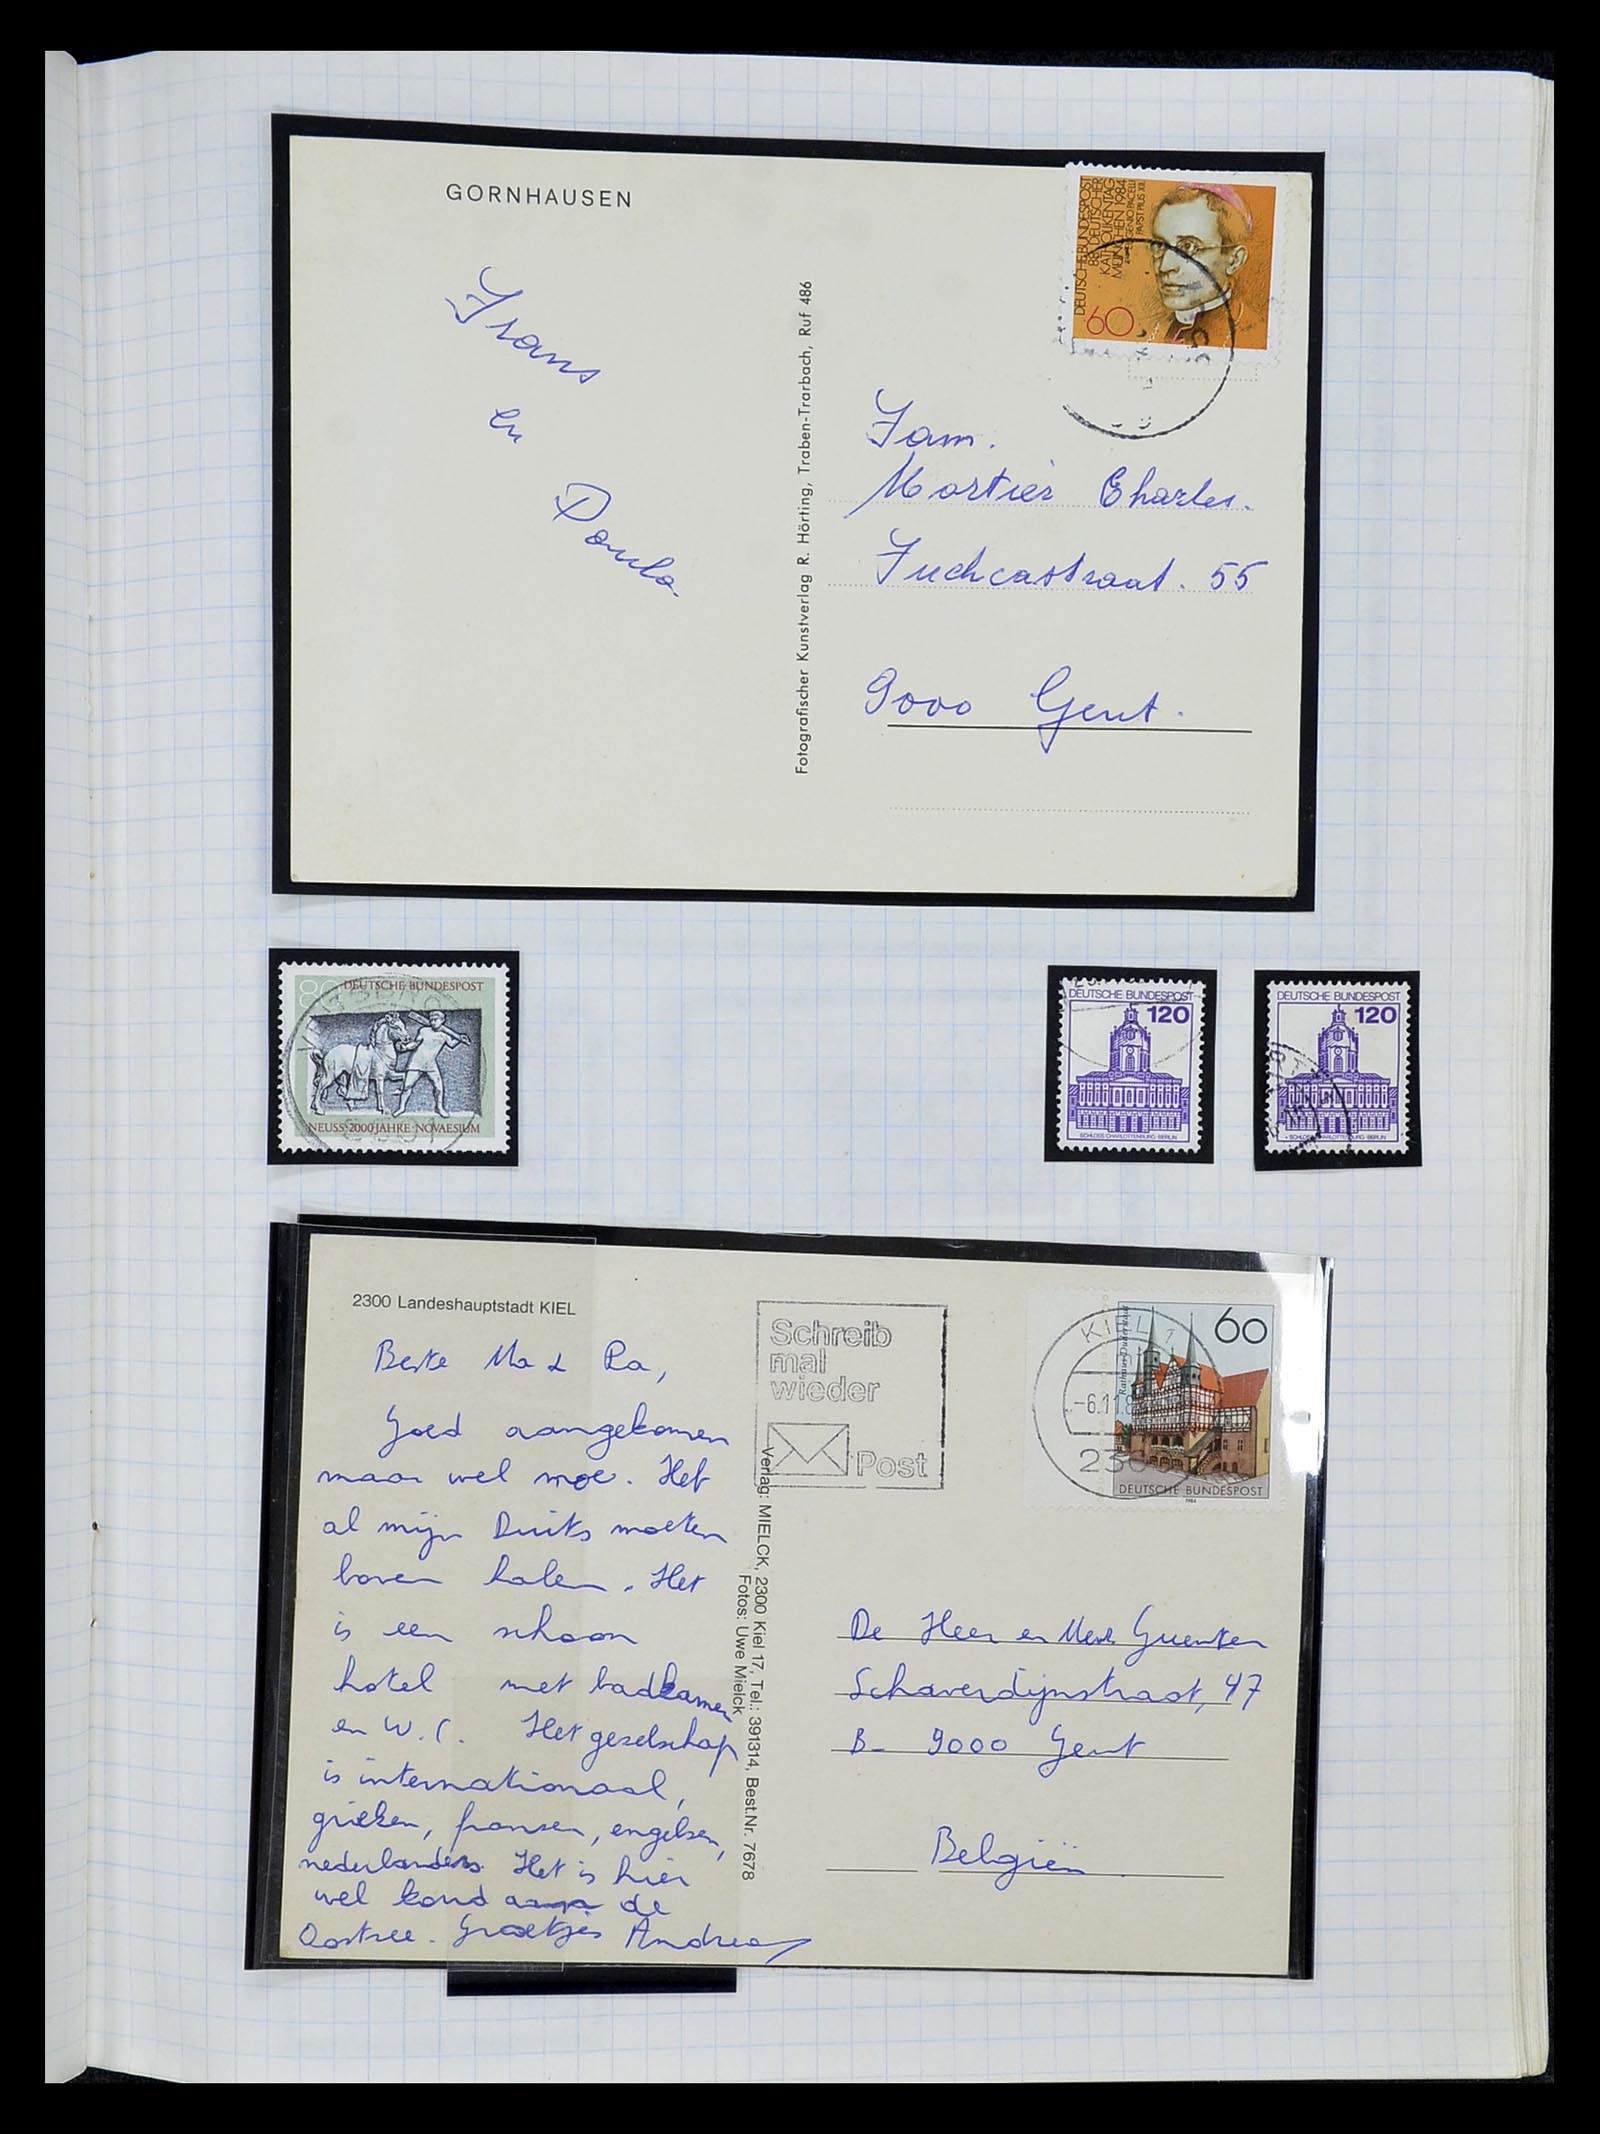 GORNHAUSEN
DEUTSCHE BUNDESPOST
88. DEUTSCHER
KATHOLIKENTAG
MÜNCHEN 1984
EUGENIO PACELLI
PAPST PIUS XII.
60
Frans
en
Paula.
Fotografischer Kunstverlag R. Hörting, Traben-Trarbach, Ruf 486
Fam.
Mortier Charles.
Fuchsiastraat. 55
9000 Gent.
80 DEUTSCHE BUNDESPOST
NEUSS 2000 JAHRE NOVAESIUM
DEUTSCHE BUNDESPOST
120
SCHLOSS CHARLOTTENBURG · BERLIN
DEUTSCHE BUNDESPOST
120
SCHLOSS CHARLOTTENBURG · BERLIN
2300 Landeshauptstadt KIEL
Beste Ma & Pa,
Goed aangekomen
maar wel moe. Heb
al mijn Duits moeten
boven halen. Het
is een schoon
hotel met badkamer
en W.C. Het gezelschap
is internationaal,
grieken, fransen, engelsen,
nederlanders. Het is hier
wel koud aan de
Oostzee. Groetjes Andrea
Schreib
mal
wieder
Post
KIEL 1
-6.11.8
230
60
DEUTSCHE BUNDESPOST
1984
Verlag: MIELCK, 2300 Kiel 17, Tel.: 391314, Best.Nr. 7678
Fotos: Uwe Mielck
De Heer en Mevr
47
B- 9000 Gent
Belgiën.